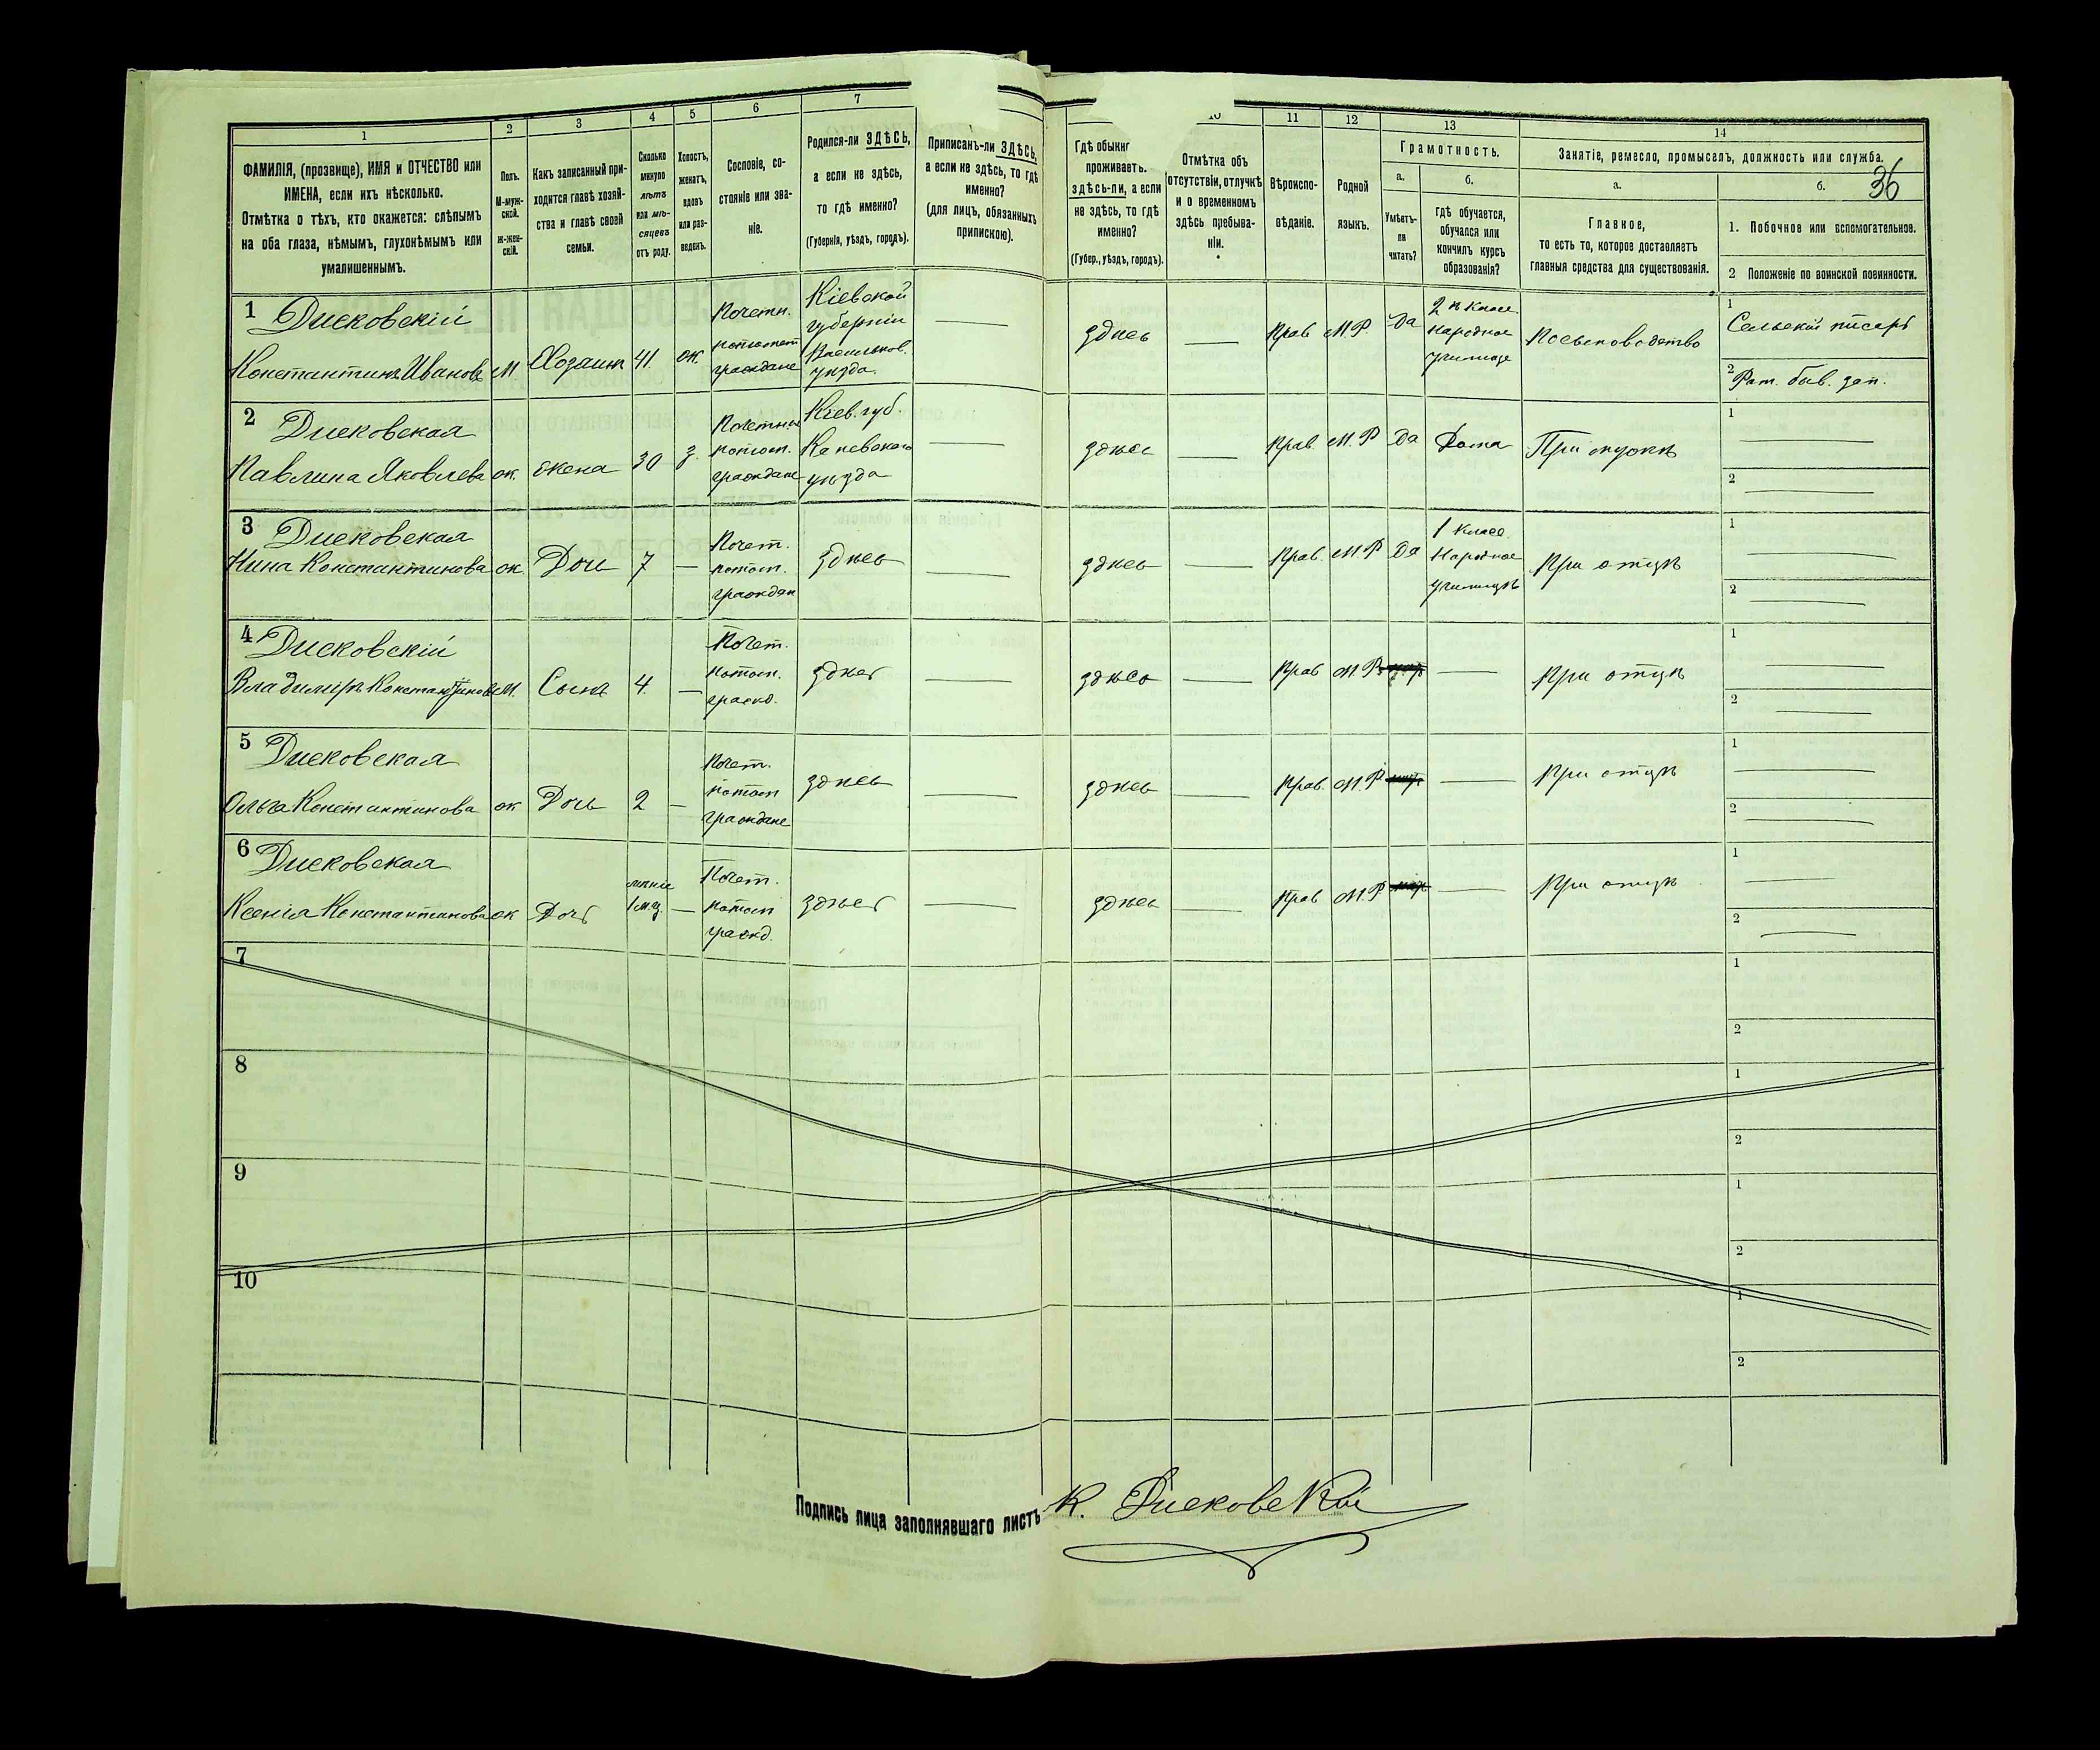 1
2
3
4
5
6
7
11
12
13
14
36
ФАМИЛІЯ, (прозвище), ИМЯ и ОТЧЕСТВО или
ИМЕНА, если ихъ нѣсколько.
Отмѣтка о тѣхъ, кто окажется: слѣпымъ
на оба глаза, нѣмымъ, глухонѣмымъ или
умалишеннымъ.
Полъ.
М-муж-
ской.
ж-жен-
скій.
Какъ записанный при-
ходится главѣ хозяй-
ства и главѣ своей
семьи.
Сколько
минуло
лѣтъ
или мѣ-
сяцевъ
отъ роду.
Холостъ,
женатъ,
вдовъ
или раз-
веденъ.
Сословіе, со-
стояніе или зва-
ніе.
Родился-ли ЗДѢСЬ,
а если не здѣсь,
то гдѣ именно?
(Губернія, уѣздъ, городъ).
Приписанъ-ли ЗДѢСЬ,
а если не здѣсь, то гдѣ
именно?
(для лицъ, обязанныхъ
припискою).
Гдѣ
проживаетъ.
здѣсь-ли, а если
не здѣсь, то гдѣ
именно?
(Губер., уѣздъ, городъ).
Отмѣтка объ
отсутствіи, отлучкѣ
и о временномъ
здѣсь пребыва-
ніи.
Вѣроиспо-
вѣданіе.
Родной
языкъ.
Грамотность.
а.
Умѣетъ-
ли
читать?
б.
гдѣ обучается,
обучался или
кончилъ курсъ
образованія?
Занятіе, ремесло, промыселъ, должность или служба.
а.
Главное,
то есть то, которое доставляетъ
главныя средства для существованія.
б.
1. Побочное или вспомогательное.
2 Положеніе по воинской повинности.
1 Дисковскій
Константинъ Ивановъ М. Хозаин 41. ж.
Почетн.
граждане
Кіевской
губерніи
Васильков.
уѣзда.
здѣсь Прав М.Р. Да
2 х класс.
народное
училище
1
Сельскій писарь
2
2 Дисковская
Павлина Яковлева ж. жена 30 з.
потом.
граждане
Кіев. губ.
Каневского
уѣзда
здѣсь Прав. М.Р Да Дома При мужѣ
1
2
3 Дисковская
Нина Константинова ж. Дочь 7
Почет.
потом.
граждан
здѣсь здѣсь Прав. М.Р Да
1 класс.
Народное
училищѣ
При отцѣ
1
2
4 Дисковскій
Владимиръ Константинов М. Сынъ 4.
Почет.
потом.
гражд.
здѣсь здѣсь Прав М.Р. При отцѣ
1
2
5 Дисковская
Ольга Константинова ж Дочь 2
Почет.
потом
граждане
здѣсь здѣсь Прав. М.Р При отцѣ
1
2
6 Дисковская
Ксенія Константинова ж Дочь
1 мц.
Почет.
потом
гражд.
здѣсь здѣсь Прав М.Р. При отцѣ
1
2
7
1
2
8
1
2
9
1
2
10
1
2
Подпись лица заполнявшаго листъ К. Дисковскій